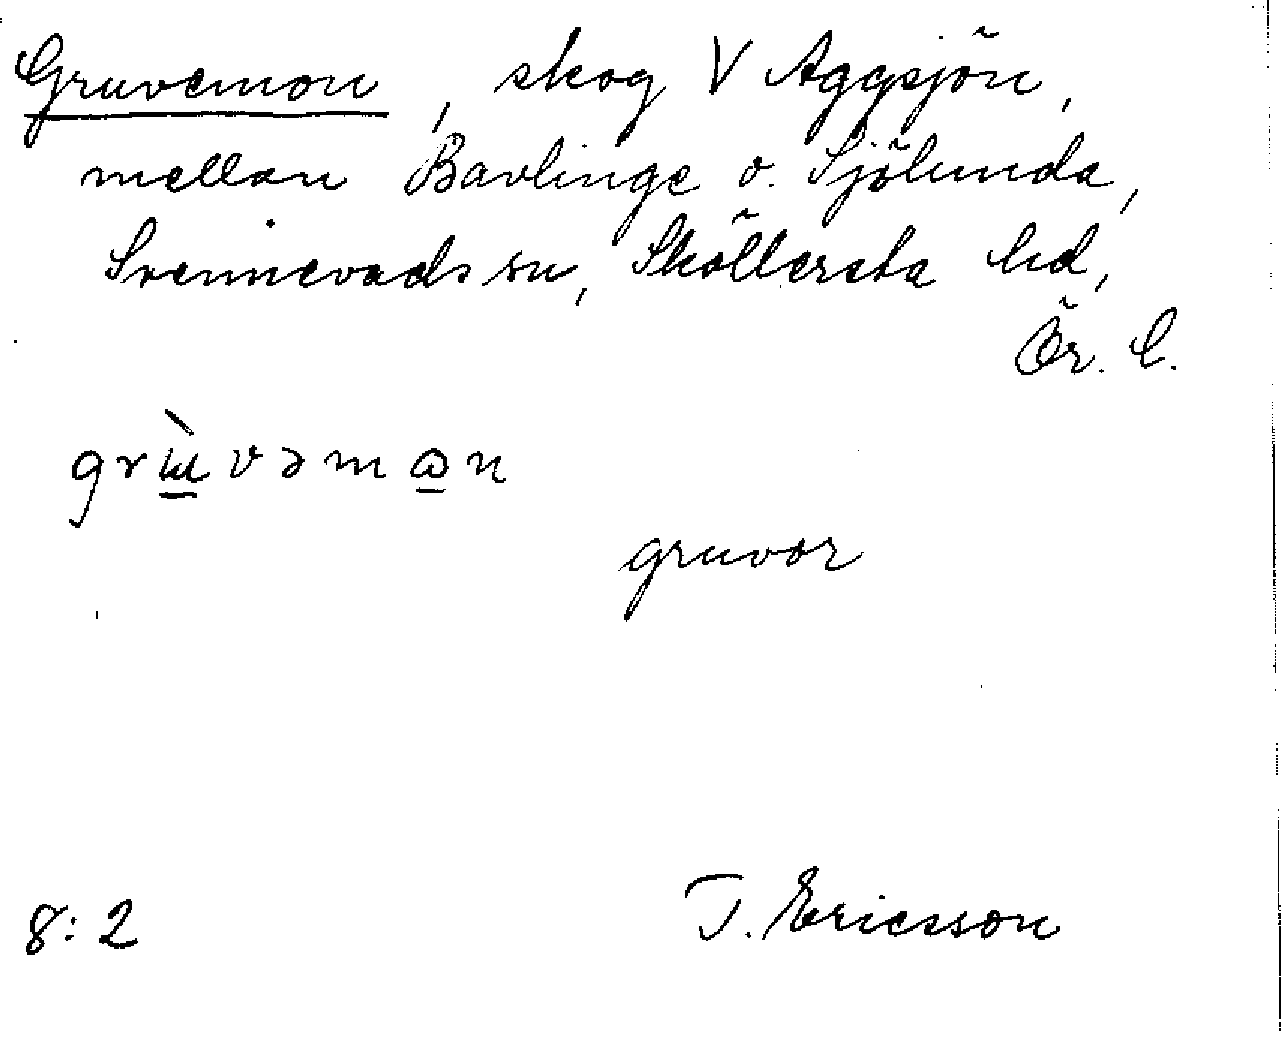 Gruvemon, skog V Aggsjön,
mellan Bavlinge o. Sjölunda,
Svennevads sn, Sköllersta hd,
Ör. l.
grɯ̱̀vəmɷ̱n
gruvor
8:2
T. Ericsson